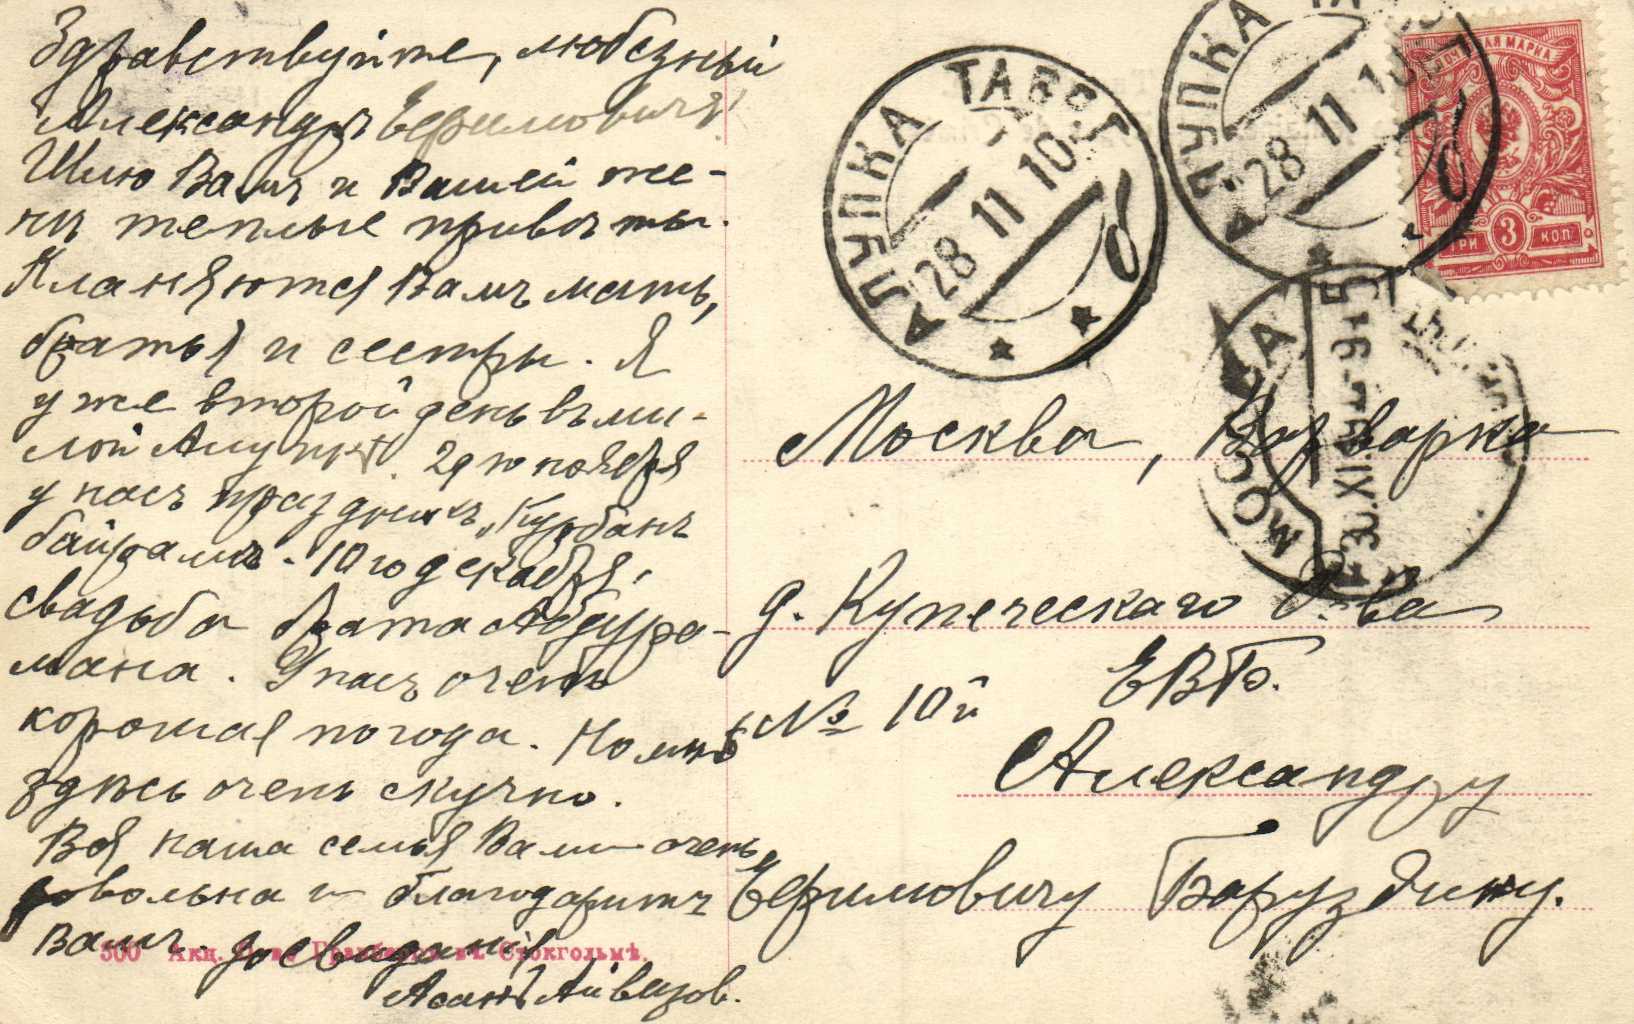 Здравствуйте, любезный
Александръ Ефимовичъ!
Шлю Вамъ и Вашей же-
нѣ теплые привѣты.
Кланяются Вамъ мать,
братья и сестры. Я
уже второй день въ ми-
лой Алупкѣ. 29 го ноября
у насъ праздникъ „Курбанъ
байрамъ. 10 го декабря,
свадьба брата Абдура-
мана. У насъ очень
хорошая погода. Но мнѣ
здѣсь очень скучно.
Вся наша семья Вами очень
довольна и благодаритъ
Васъ. До свиданія
Асанъ Айвазов.
500 Акц. Стокгольмѣ.
АЛУПКА ТАВР. Г.
28 11 10
б
АЛУПКА ТА
28 11 10
б
ПОЧТОВАЯ МАРКА
ТРИ 3 КОП
МОСКВА
30 XI
Москва, Варварка
д. Купеческаго О.-ва
ЕВБ.
№ 10й
Александру
Ефимовичу Баруздину.